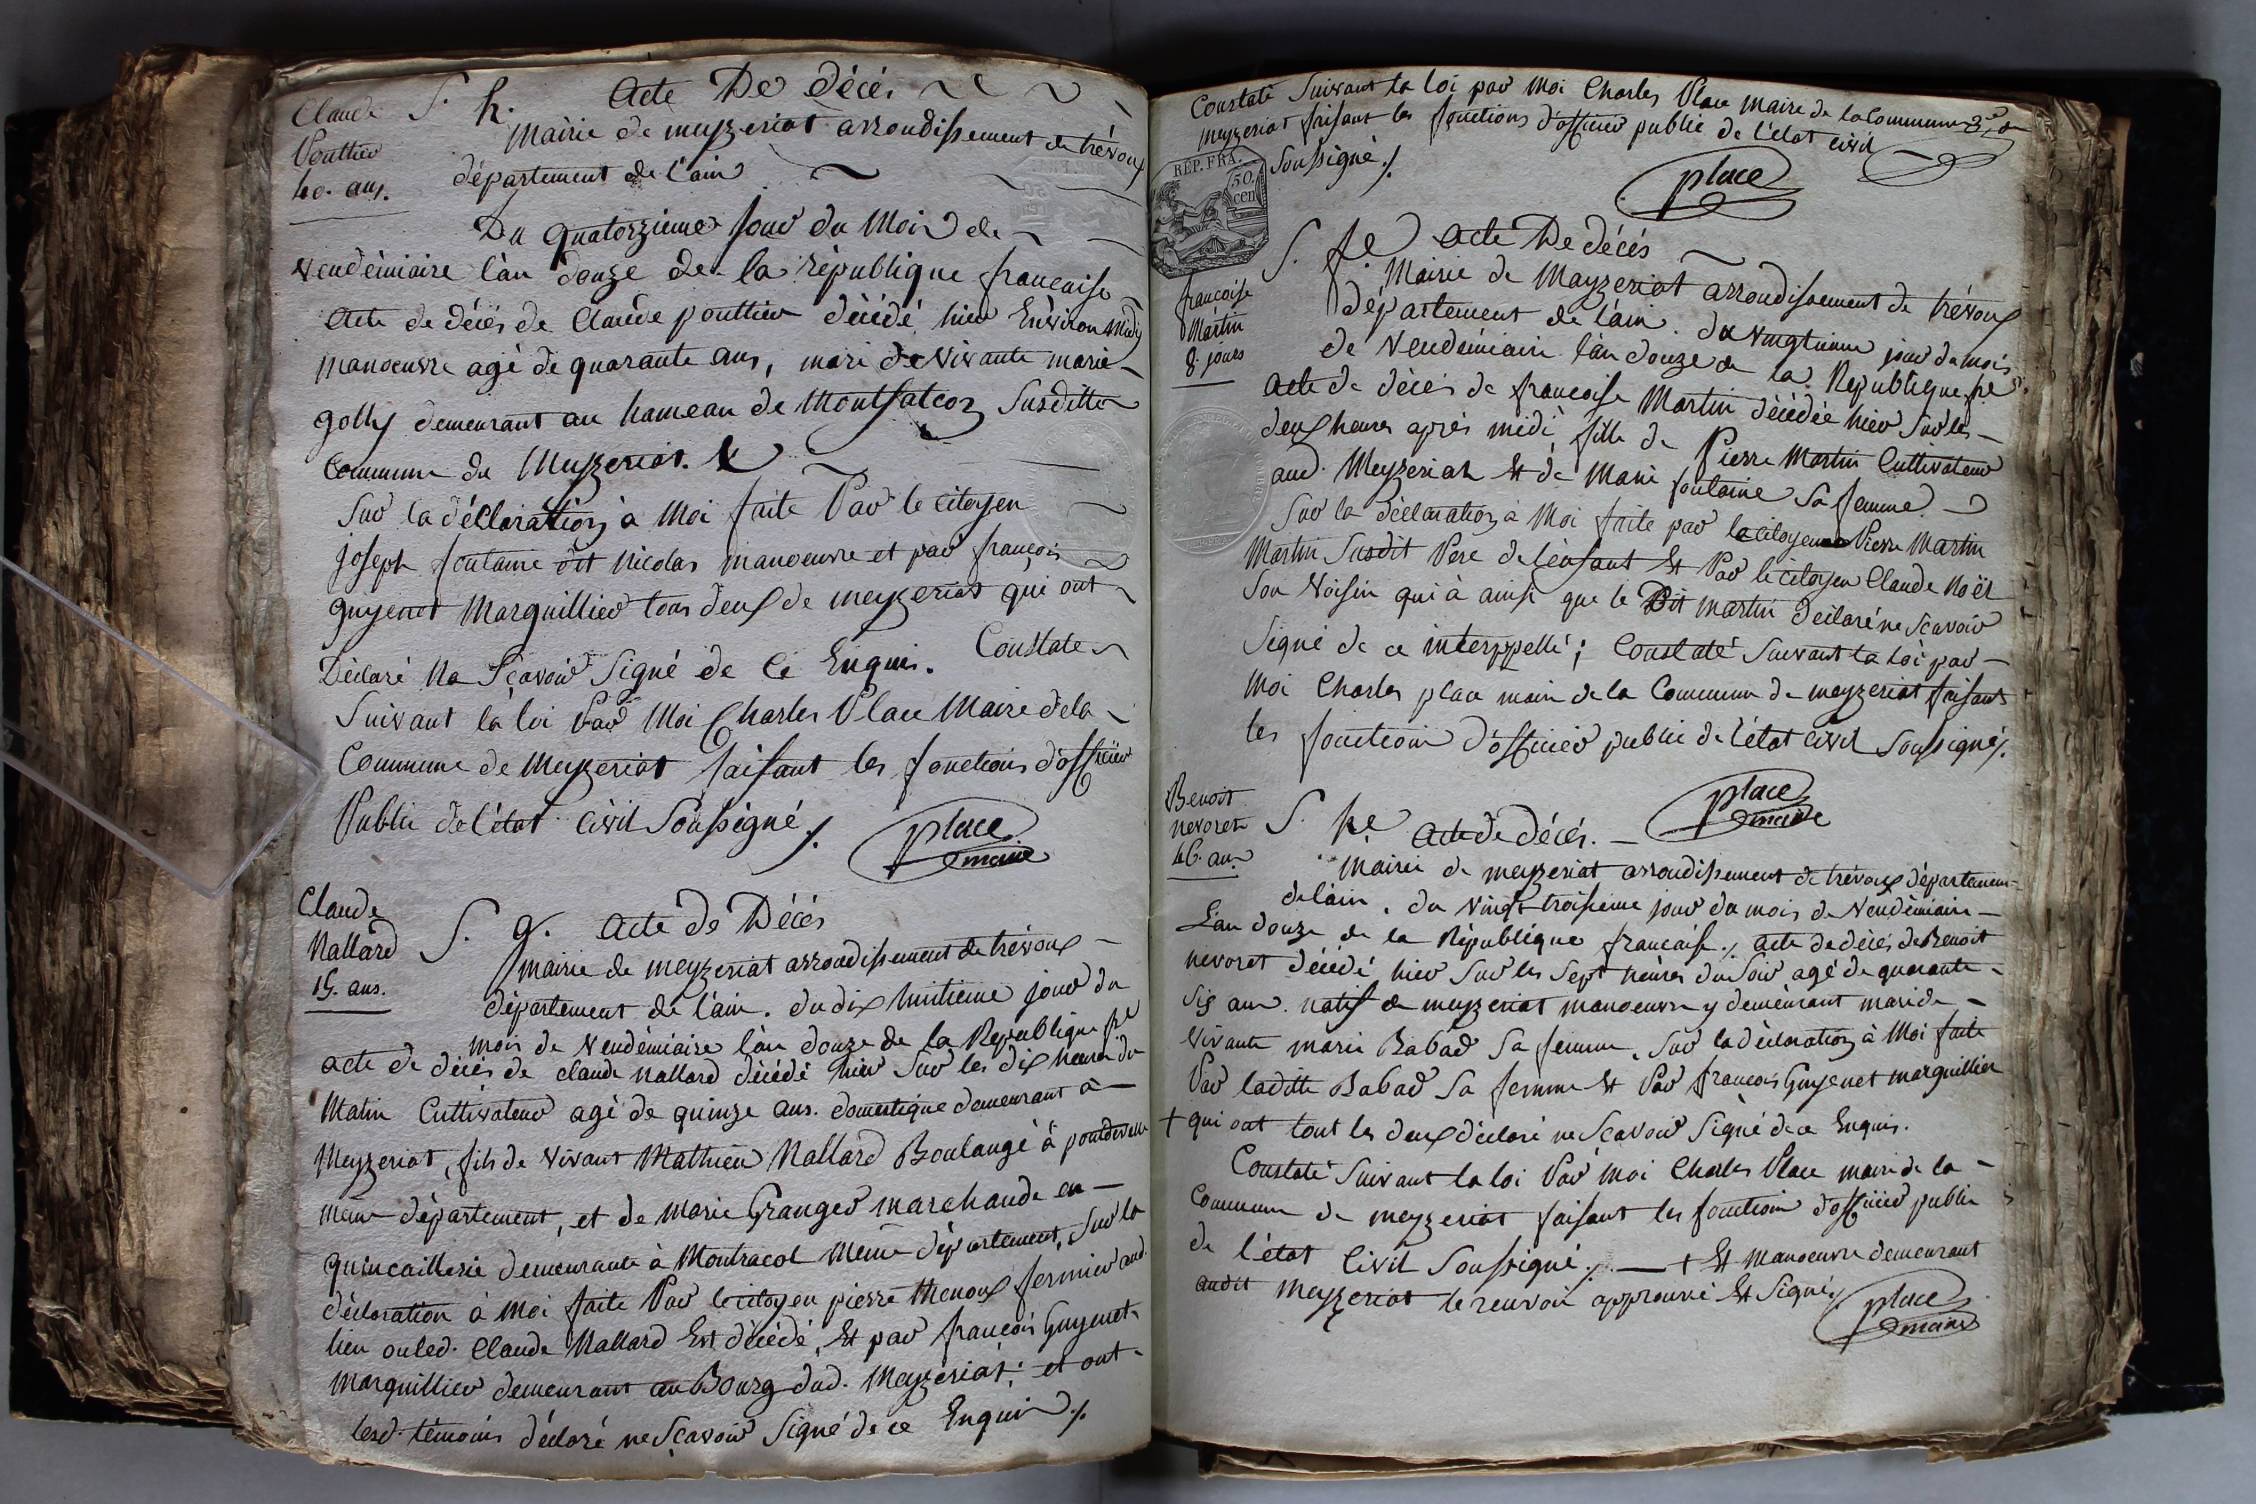 Claude
Pouttier
40. ans.
S. h. Acte De décés
Mairie de meyzeriat arrondissement de trévoux
département de l'ain
Du quatorzieme jour du Mois de
vendémiaire l'an douze de la république francaise
Acte de décés de Claude pouttier décédé hier Environ midy
manoeuvre agé de quarante ans, mari de vivante marie
golly demeurant au hameau de Montfalcon Susditte
Commune de Meyzeriat.
Sur la déclaration à Moi faite Par le citoyen
joseph fontaine dit Nicolas manoeuvre et par françois
guyenet Marguillier tous deux de meyzeriat qui ont
Déclaré Ne Sçavoir Signé de Ce Enquis. Constate
Suivant la loi Par Moi Charles Place Maire de la
Commune de Meyzeriat faisant les fonctions d'officier
Public de l'état Civil Soussigné ./.
place
maire
Claude
Nallard
15. ans.
S. g. Acte de Décés
Mairie de meyzeriat arrondissement de trévoux
département de l'ain. du dix huitieme jour du
mois de vendémiaire l'an douze de la République fse
acte de décés de Claude Nallard décédé hier Sur les dix heures du
Matin Cultivateur agé de quinze ans. domestique demeurant à
Meyzeriat, fils de vivant Mathieu Nallard Boulangé à pontdevelle
meme département, et de Marie Granger marchande en
quincaillerie demeurante à Montracol Meme département, Sur la
déclaration à Moi faite Par le citoyen pierre thenoux fermier aud.
lieu ou led. Claude Nallard Est décédé, Et par françois Guyenet
Marguillier demeurant au Bourg dud. Meyzeriat; et ont
lesd. témoins déclaré ne Sçavoir Signé de ce Enquis ./.
Constaté Suivant la loi par Moi Charles Place Maire de la Commune de
Meyzeriat faisant les fonctions d'officier public de l'état civil
Soussigné ./.
REP. FRA.
50.
cen
place
francoise
Martin
8. jours
S. fe Acte De décés
Mairie de Mayzeriat arrondissement de trévoux
département de l'ain. du vingtieme jour du mois
de vendémiaire l'an douze de la République fse
Acte de décés de francoise Martin décédée hier Sur les
deux heures après midi, fille de Pierre Martin Cultivateur
aud. Meyzeriat Et de Marie fontaine Sa femme.
Sur la déclaration à Moi faite par le citoyen Pierre Martin
Martin Susdit Pere de l'enfant Et Par le citoyen Claude Noël
Son Voisin qui à ainsi que le Dit Martin déclaré ne Scavoir
Signé de ce interppellé; Constaté Suivant la loi par
Moi Charles place maire de la Commune de meyzeriat faisant
les fonctions d'officier public de l'état Civil Soussigné ./.
place
maire
Benoit
nevoret
46. ans
S. he Acte de décés.
Mairie de meyzeriat arrondissement de trévoux département
de l'ain. du vingt troisieme jour du mois de vendémiaire
L'an douze de la République francaise ./. acte de décés de Benoit
nevoret décédé hier Sur les sept heures du Soir agé de quarante
Six ans. natif de meyzeriat manoeuvre y demeurant mari de
Vivante marie Babad Sa femme. Sur la déclaration à Moi faite
Par laditte Babad Sa femme Et Par françois Guyenet marguillier
+ qui ont tout les deux déclaré ne Scavoir Signé de ce Enquis.
Constaté Suivant la loi Par Moi Charles Place maire de la
Commune de meyzeriat faisant les fonctions d'officier public
de l'état Civil Soussigné ./. + Et Manoeuvre demeurant
audit Meyzeriat le renvoi approuvé Et Signé ./.
place
maire